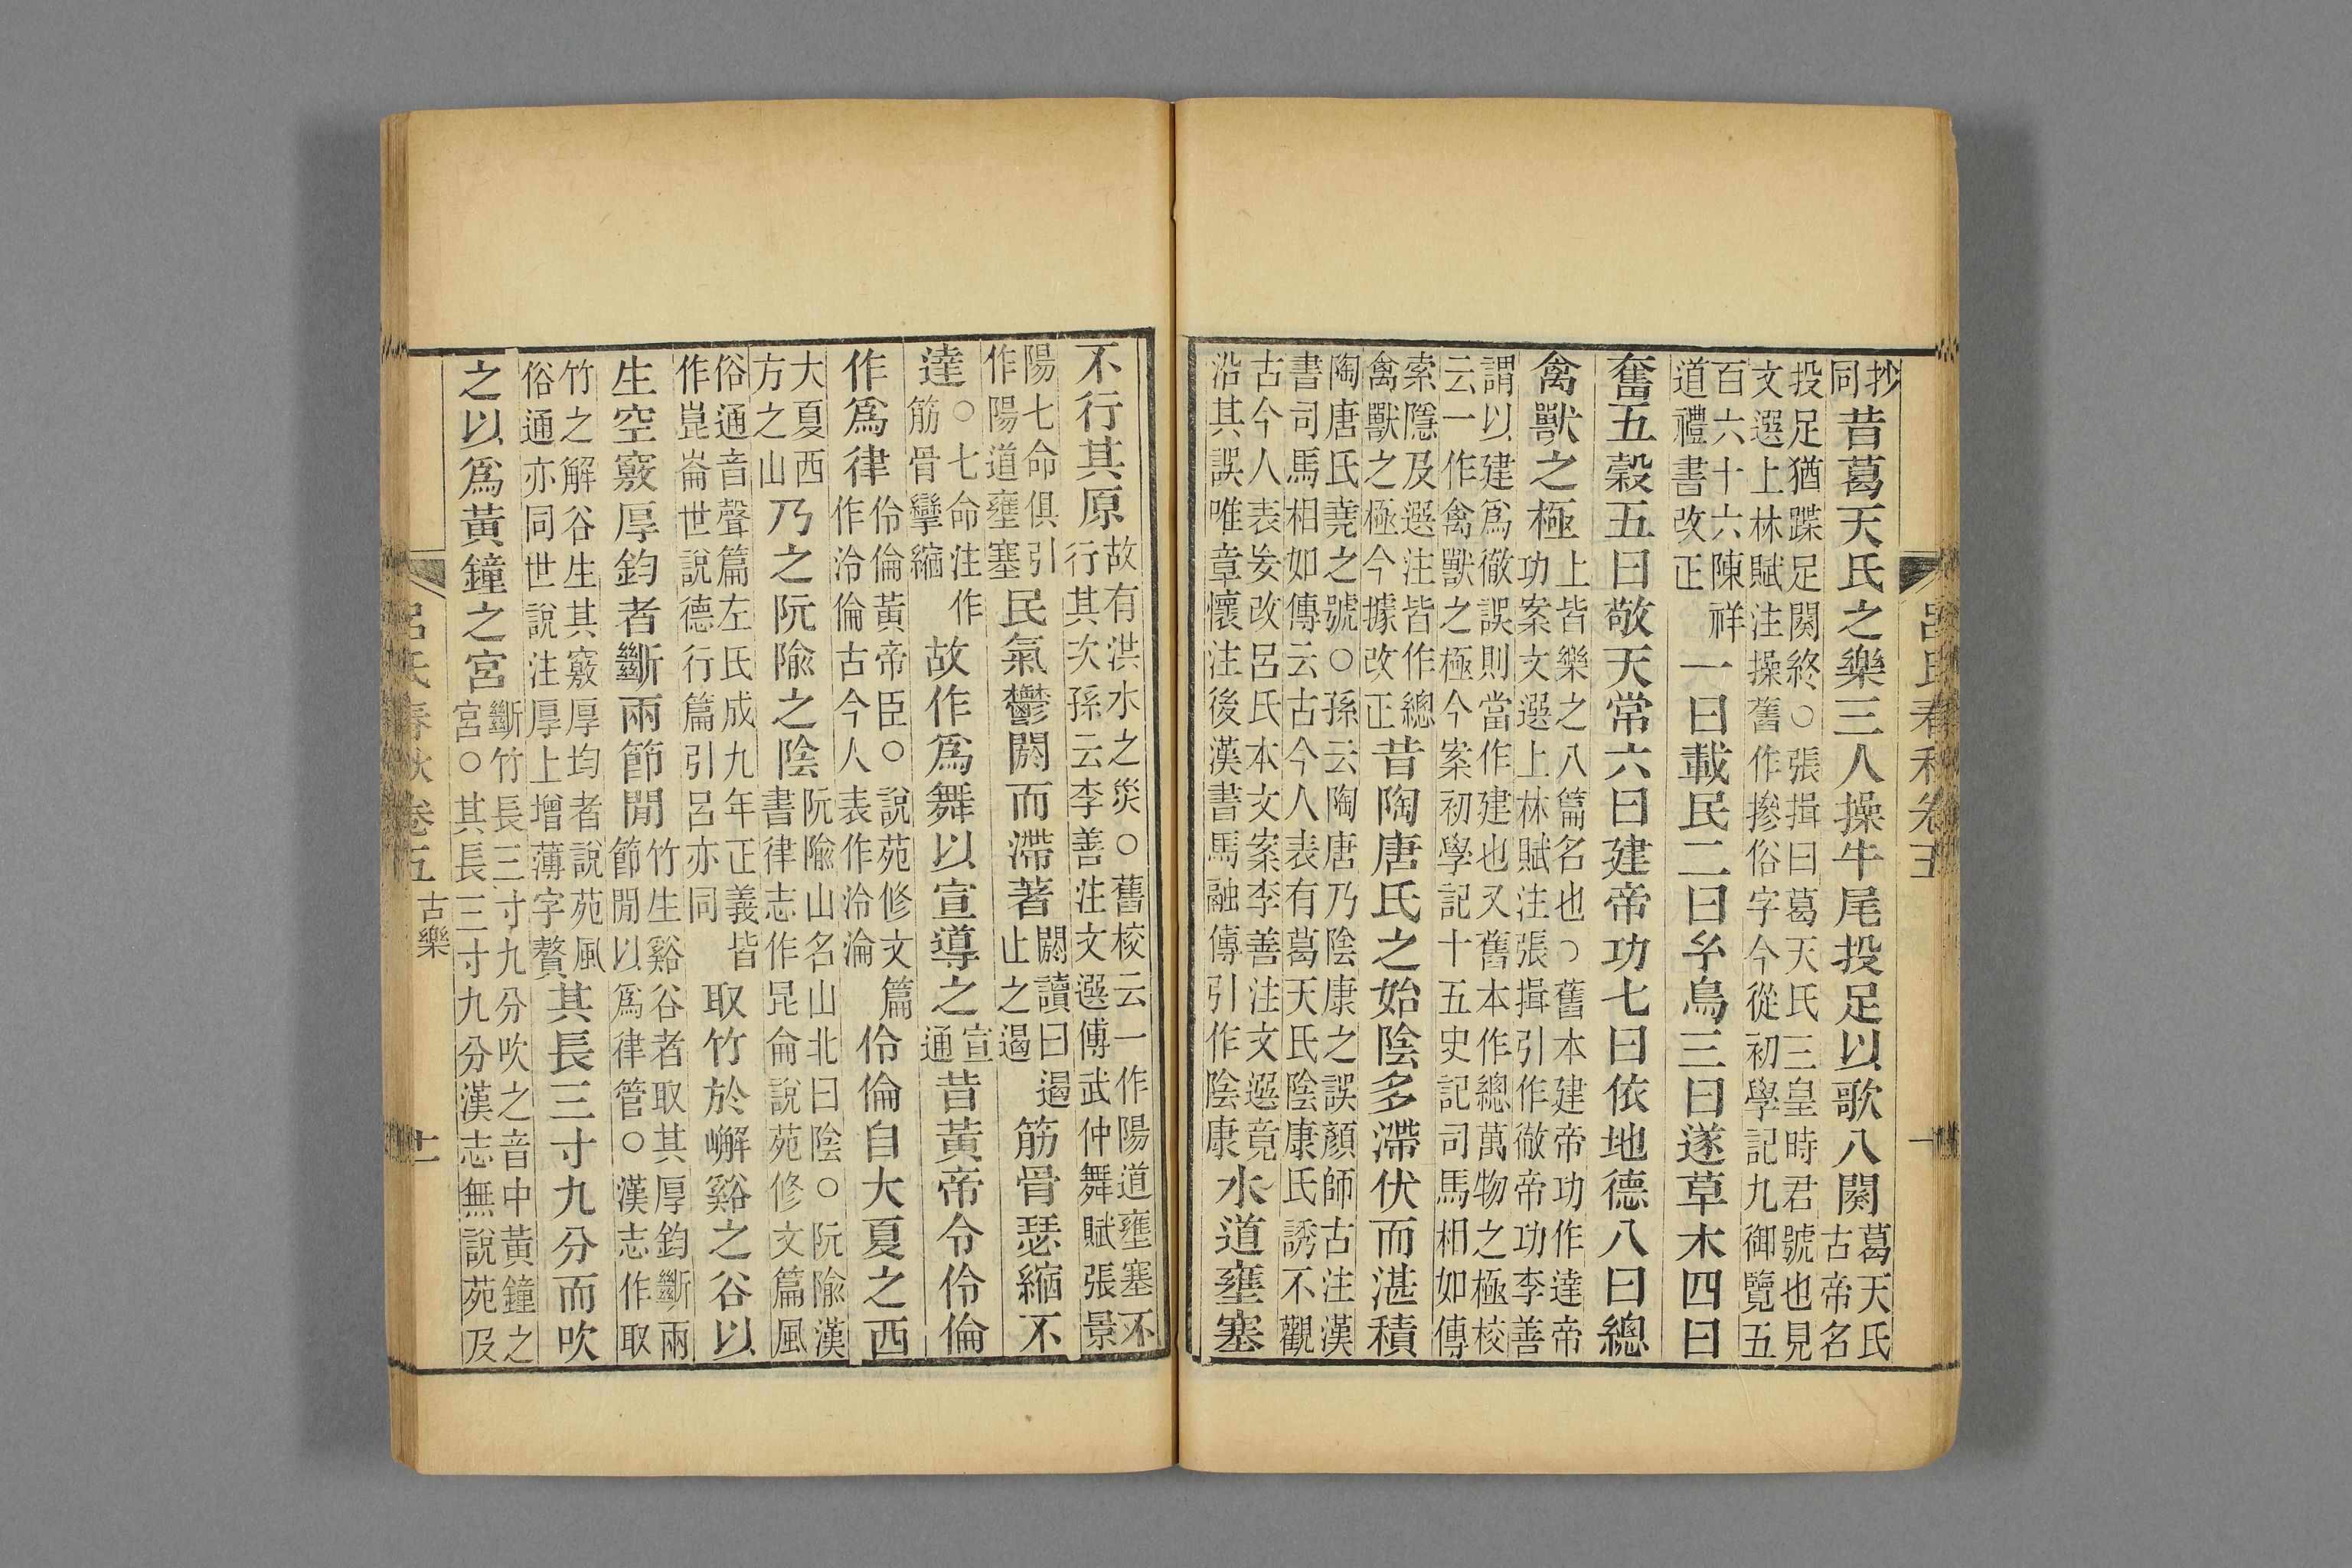 呂氏春秋卷五
抄同昔葛天氏之樂三人操牛尾投足以歌八闋葛天氏古帝名
投足猶蹀足闋終○張揖曰葛天氏三皇時君號也見
文選上林賦注操舊作摻俗字今從初學記九御覽五
百六十六陳祥道禮書改正一曰載民二曰玄鳥三曰遂草木四曰
奮五穀五曰敬天常六曰建帝功七曰依地德八曰總
禽獸之極上皆樂之八篇名也○舊本建帝功作達帝功案文選上林賦注張揖引作徹帝功李善
謂以建爲徹誤則當作建也又舊本作總萬物之極校
云一作禽獸之極今案初學記十五史記司馬相如傳
索隱及選注皆作總禽獸之極今據改正昔陶唐氏之始陰多滯伏而湛積
陶唐氏堯之號○孫云陶唐乃陰康之誤顏師古注漢
書司馬相如傳云古今人表有葛天氏陰康氏誘不觀
古今人表妄改呂氏本文案李善注文選竟沿其誤唯章懷注後漢書馬融傳引作陰康水道壅塞
不行其原故有洪水之災○舊校云一作陽道壅塞不行其次孫云李善注文選傅武仲舞賦張景
陽七命俱引作陽道壅塞民氣鬱閼而滯著閼讀曰遏止之遏筋骨瑟縮不
達○七命注作筋骨攣縮故作爲舞以宣導之宣通昔黃帝令伶倫
作爲律伶倫黃帝臣○說苑修文篇作泠倫古今人表作泠淪伶倫自大夏之西
大夏西方之山乃之阮隃之陰阮隃山名山北曰陰○阮隃漢書律志作昆侖說苑修文篇風
俗通音聲篇左氏成九年正義皆作崑崙世說德行篇引呂亦同取竹於嶰谿之谷以
生空竅厚鈞者斷兩節閒竹生谿谷者取其厚鈞斷兩節閒以爲律管○漢志作取
竹之解谷生其竅厚均者說苑風俗通亦同世說注厚上增薄字贅其長三寸九分而吹
之以爲黃鐘之宮斷竹長三寸九分吹之音中黃鐘之宮○其長三寸九分漢志無說苑及
呂氏春秋卷五 古樂 十一